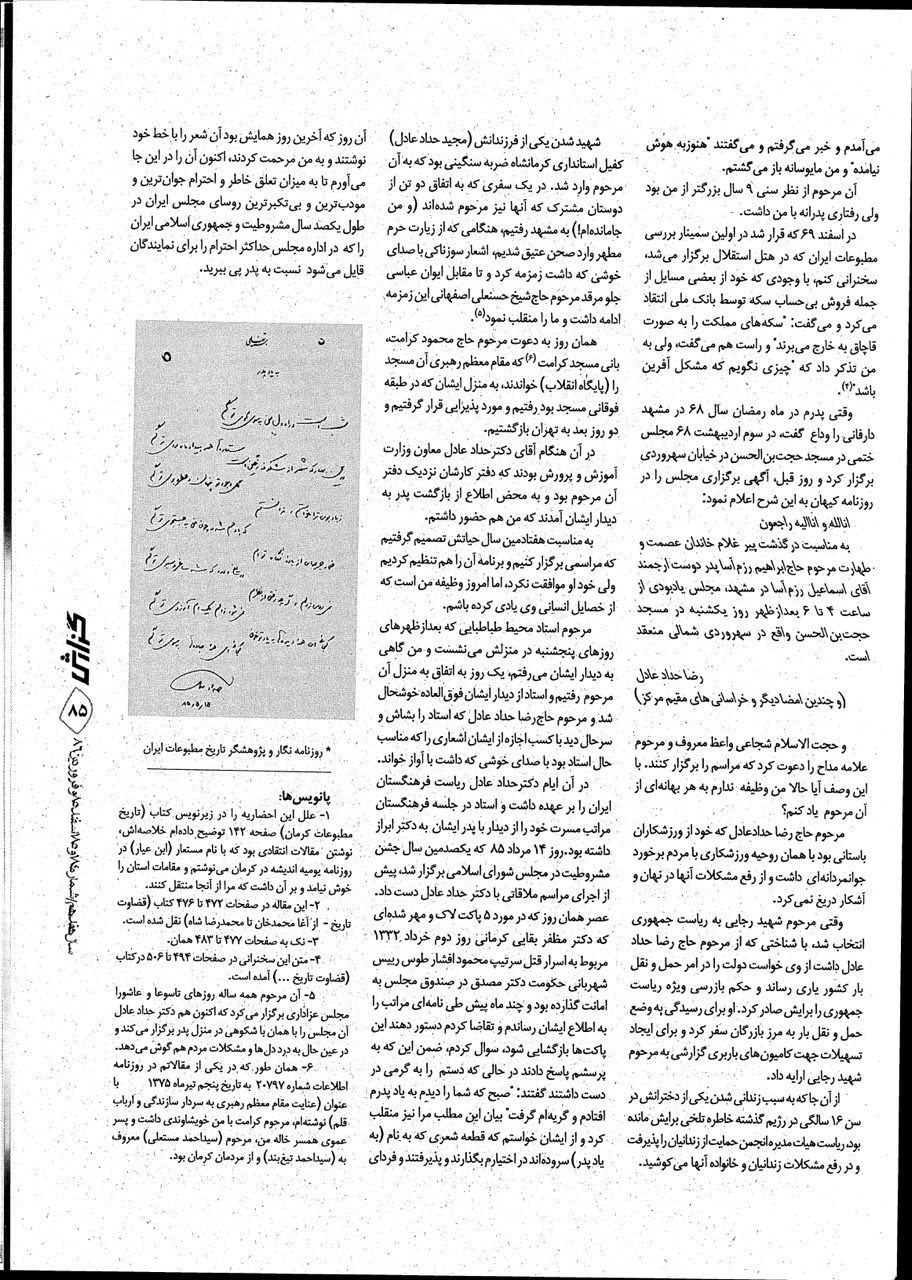 می‌آمدم و خبر می‌گرفتم و می‌گفتند "هنوز به هوش
نیامده" و من مایوسانه باز می‌گشتم.
آن مرحوم از نظر سنی ۹ سال بزرگتر از من بود
ولی رفتاری پدرانه با من داشت.
در اسفند ۶۹ که قرار شد در اولین سمینار بررسی
مطبوعات ایران که در هتل استقلال برگزار می‌شد،
سخنرانی کنم، با وجودی که خود از بعضی مسایل از
جمله فروش بی‌حساب سکه توسط بانک ملی انتقاد
می‌کرد و می‌گفت: "سکه‌های مملکت را به صورت
قاچاق به خارج می‌برند" و راست هم می‌گفت، ولی به
من تذکر داد که "چیزی نگویم که مشکل آفرین
باشد"(۴).
وقتی پدرم در ماه رمضان سال ۶۸ در مشهد
دارفانی را وداع گفت، در سوم اردیبهشت ۶۸ مجلس
ختمی در مسجد حجت‌بن‌الحسن در خیابان سهروردی
برگزار کرد و روز قبل، آگهی برگزاری مجلس را در
روزنامه کیهان به این شرح اعلام نمود:
انالله و اناالیه راجعون
به مناسبت در گذشت پیر غلام خاندان عصمت و
طهارت مرحوم حاج ابراهیم رزم آسا پدر دوست ارجمند
آقای اسماعیل رزم آسا در مشهد، مجلس یادبودی از
ساعت ۴ تا ۶ بعدازظهر روز یکشنبه در مسجد
حجت‌بن‌الحسن واقع در سهروردی شمالی منعقد
است.
رضا حداد عادل
(و چندین امضا دیگر و خراسانی های مقیم مرکز)
و حجت الاسلام شجاعی واعظ معروف و مرحوم
علامه مداح را دعوت کرد که مراسم را برگزار کنند. با
این وصف آیا حالا من وظیفه ندارم به هر بهانه‌ای از
آن مرحوم یاد کنم؟
مرحوم حاج رضا حدادعادل که خود از ورزشکاران
باستانی بود با همان روحیه ورزشکاری با مردم برخورد
جوانمردانه‌ای داشت و از رفع مشکلات آنها در نهان و
آشکار دریغ نمی‌کرد.
وقتی مرحوم شهید رجایی به ریاست جمهوری
انتخاب شد، با شناختی که از مرحوم حاج رضا حداد
عادل داشت از وی خواست دولت را در امر حمل و نقل
بار کشور یاری رساند و حکم بازرسی ویژه ریاست
جمهوری را برایش صادر کرد. او برای رسیدگی به وضع
حمل و نقل بار به مرز بازرگان سفر کرد و برای ایجاد
تسهیلات جهت کامیون‌های باربری گزارشی به مرحوم
شهید رجایی ارایه داد.
از آن جا که به سبب زندانی شدن یکی از دخترانش در
سن ۱۶ سالگی در رژیم گذشته خاطره تلخی برایش مانده
بود، ریاست هیات مدیره انجمن حمایت از زندانیان را پذیرفت
و در رفع مشکلات زندانیان و خانواده آنها می‌کوشید.
شهید شدن یکی از فرزندانش (مجید حداد عادل)
کفیل استانداری کرمانشاه ضربه سنگینی بود که به آن
مرحوم وارد شد. در یک سفری که به اتفاق دو تن از
دوستان مشترک که آنها نیز مرحوم شده‌اند (و من
جامانده‌ام!) به مشهد رفتیم، هنگامی که از زیارت حرم
مطهر وارد صحن عتیق شدیم، اشعار سوزناکی با صدای
خوشی که داشت زمزمه کرد و تا مقابل ایوان عباسی
جلو مرقد مرحوم حاج‌شیخ حسنعلی اصفهانی این زمزمه
ادامه داشت و ما را منقلب نمود(۵).
همان روز به دعوت مرحوم حاج محمود کرامت،
بانی مسجد کرامت (۶) که مقام معظم رهبری آن مسجد
را (پایگاه انقلاب) خواندند، به منزل ایشان که در طبقه
فوقانی مسجد بود رفتیم و مورد پذیرایی قرار گرفتیم و
دو روز بعد به تهران بازگشتیم.
در آن هنگام آقای دکتر حداد عادل معاون وزارت
آموزش و پرورش بودند که دفتر کارشان نزدیک دفتر
آن مرحوم بود و به محض اطلاع از بازگشت پدر به
دیدار ایشان آمدند که من هم حضور داشتم.
به مناسبت هفتادمین سال حیاتش تصمیم گرفتیم
که مراسمی برگزار کنیم و برنامه آن را هم تنظیم کردیم
ولی خود او موافقت نکرد، اما امروز وظیفه من است که
از خصایل انسانی وی یادی کرده باشم.
مرحوم استاد محیط طباطبایی که بعدازظهرهای
روزهای پنجشنبه در منزلش می‌نشست و من گاهی
به دیدار ایشان می‌رفتم، یک روز به اتفاق به منزل آن
مرحوم رفتیم و استاد از دیدار ایشان فوق‌العاده خوشحال
شد و مرحوم حاج رضا حداد عادل که استاد را بشاش و
سرحال دید با کسب اجازه از ایشان اشعاری را که مناسب
حال استاد بود با صدای خوشی که داشت با آواز خواند.
در آن ایام دکتر حداد عادل ریاست فرهنگستان
ایران را بر عهده داشت و استاد در جلسه فرهنگستان
مراتب مسرت خود را از دیدار با پدر ایشان به دکتر ابراز
داشته بود. روز ۱۴ مرداد ۸۵ که یکصدمین سال جشن
مشروطیت در مجلس شورای اسلامی برگزار شد، پیش
از اجرای مراسم ملاقاتی با دکتر حداد عادل دست داد.
عصر همان روز که در مورد ۵ پاکت لاک و مهر شده‌ای
که دکتر مظفر بقایی کرمانی روز دوم خرداد ۱۳۳۲
مربوط به اسرار قتل سرتیپ محمود افشار طوس رییس
شهربانی حکومت دکتر مصدق در صندوق مجلس به
امانت گذارده بود و چند ماه پیش طی نامه‌ای مراتب را
به اطلاع ایشان رساندم و تقاضا کردم دستور دهند این
پاکت‌ها بازگشایی شود، سوال کردم، ضمن این که به
پرسشم پاسخ دادند در حالی که دستم را به گرمی در
دست داشتند گفتند: "صبح که شما را دیدم به یاد پدرم
افتادم و گریه‌ام گرفت" بیان این مطلب مرا نیز منقلب
کرد و از ایشان خواستم که قطعه شعری که به نام (به
یاد پدر) سروده‌اند در اختیارم بگذارند و پذیرفتند و فردای
آن روز که آخرین روز همایش بود آن شعر را با خط خود
نوشتند و به من مرحمت کردند، اکنون آن را در این جا
می‌آورم تا به میزان تعلق خاطر و احترام جوان‌ترین و
مودب‌ترین و بی‌تکبرترین روسای مجلس ایران در
طول یکصد سال مشروطیت و جمهوری اسلامی ایران
را که در اداره مجلس حداکثر احترام را برای نمایندگان
قایل می‌شود نسبت به پدر پی ببرید.
به یاد پدر
* روزنامه نگار و پژوهشگر تاریخ مطبوعات ایران
پانویس‌ها:
۱- علل این احضاریه را در زیرنویس کتاب (تاریخ
مطبوعات کرمان) صفحه ۱۴۲ توضیح داده‌ام خلاصه‌اش،
نوشتن مقالات انتقادی بود که با نام مستعار (ابن عیار) در
روزنامه یومیه اندیشه در کرمان می‌نوشتم و مقامات استان را
خوش نیامد و بر آن داشت که مرا از آنجا منتقل کنند.
۲- این مقاله در صفحات ۴۷۲ تا ۴۷۶ کتاب (قضاوت
تاریخ - از آغا محمدخان تا محمدرضا شاه) نقل شده است.
۳- نک به صفحات ۴۷۷ تا ۴۸۳ همان.
۴- متن این سخنرانی در صفحات ۴۹۴ تا ۵۰۶ در کتاب
(قضاوت تاریخ ...) آمده است.
۵- آن مرحوم همه ساله روزهای تاسوعا و عاشورا
مجلس عزاداری برگزار می‌کرد که اکنون هم دکتر حداد عادل
آن مجلس را با همان با شکوهی در منزل پدر برگزار می‌کند و
در عین حال به درد دل‌ها و مشکلات مردم هم گوش می‌دهد.
۶- همان طور که در یکی از مقالاتم در روزنامه
اطلاعات شماره ۲۰۷۹۷ به تاریخ پنجم تیرماه ۱۳۷۵ با
عنوان (عنایت مقام معظم رهبری به سردار سازندگی و ارباب
قلم) نوشته‌ام، مرحوم کرامت با من خویشاوندی داشت و پسر
عموی همسر خاله من، مرحوم (سیداحمد مستعلی) معروف
به (سیداحمد تیغ‌بند) و از مردمان کرمان بود.
گزارش
۸۵